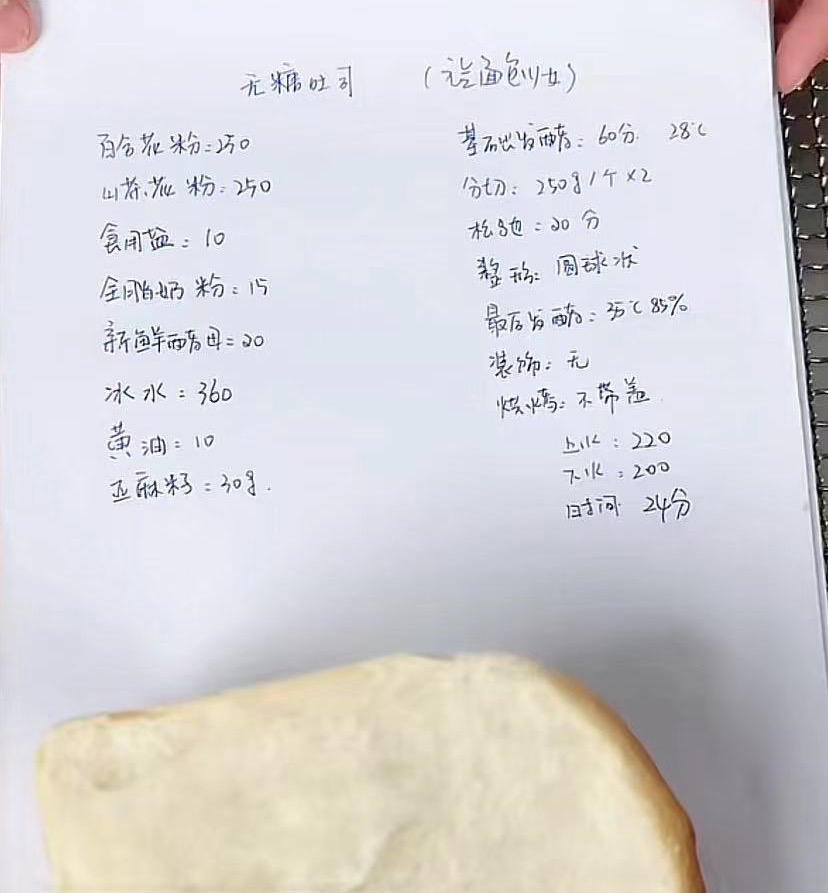 无糖吐司
百合花粉=250
山茶花粉:250
食用盐:10
全脂奶粉:15
新鲜酵母=20
冰水:360
黄油:10
亚麻籽:30g.
基础发酵:60分. 28℃
分切:250g/个×2
松弛:20分
整形:圆球状
最后发酵:35℃ 85%
装饰:无
烘烤:不带盖
上火:220
下火:200
时间 24分